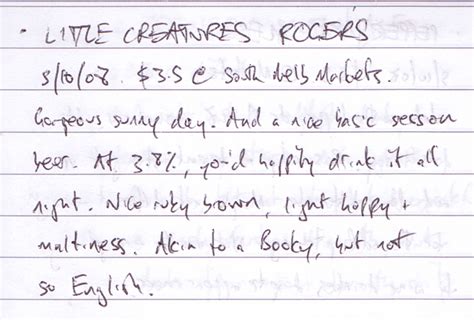 · LITTLE CREATURES ROGERS
3/10/08. $3.5 @ South Melb Markets.
Gorgeous sunny day. And a nice basic session
beer. At 3.8%, you'd happily drink it all
night. Nice ruby brown, light hoppy +
maltiness. Akin to a Booky, but not
so English.